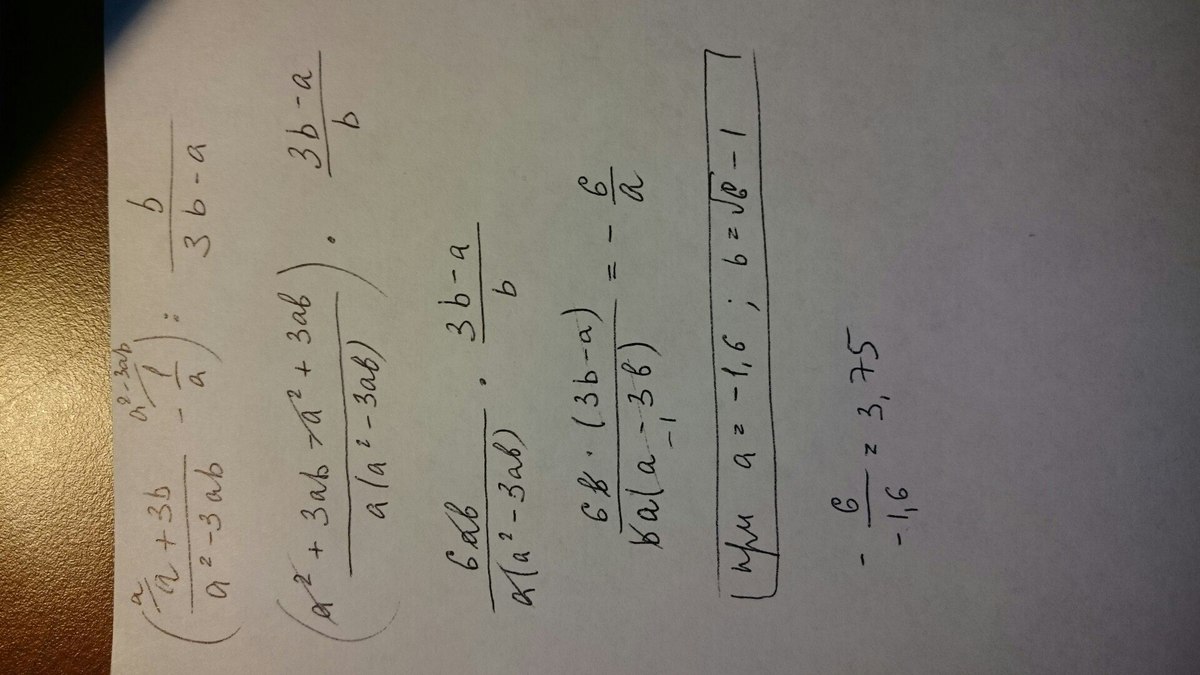 (ᵃ/ (a + 3b)/(a² - 3ab) - ᵃ²⁻³ᵃᵇ/ 1/a) : b/(3b - a)
((a² + 3ab - a² + 3ab)/(a(a² - 3ab))) · (3b - a)/b
6ab/(a(a² - 3ab)) · (3b - a)/b
(6b · (3b - a))/(ba(a - 3b)) = - 6/a
-1
при a = -1,6 ; b = √6 - 1
- 6/(-1,6) = 3,75